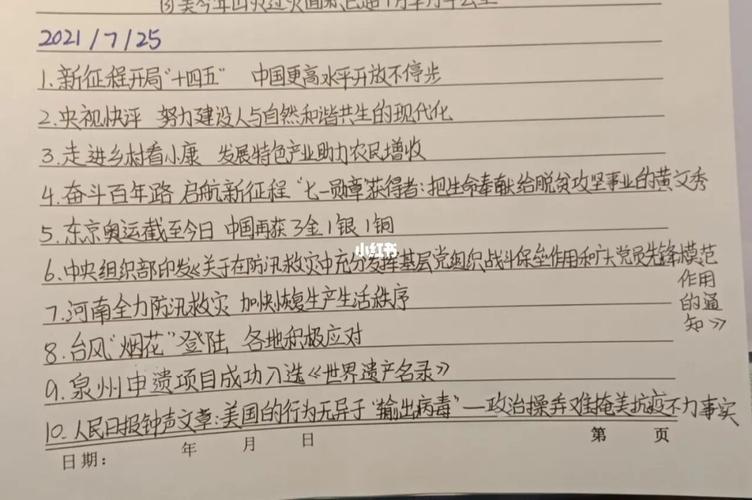 2021/7/25
1. 新征程开局"十四五" 中国更高水平开放不停步
2. 央视快评 努力建设人与自然和谐共生的现代化
3. 走进乡村看小康 发展特色产业助力农民增收
4. 奋斗百年路 启航新征程 "七一勋章"获得者:把生命奉献给脱贫攻坚事业的黄文秀
5. 东京奥运截至今日 中国再获3金1银1铜
小红书
6. 中央组织部印发《关于在防汛救灾中充分发挥基层党组织战斗保垒作用和广大党员先锋模范
作用
的通
知》
7. 河南全力防汛救灾 加快恢复生产生活秩序
8. 台风"烟花"登陆 各地积极应对
9. 泉州申遗项目成功入选《世界遗产名录》
10. 人民日报钟声文章:美国的行为无异于"输出病毒"—政治操弄难掩美抗疫不力事实
日期: 年 月 日 第 页